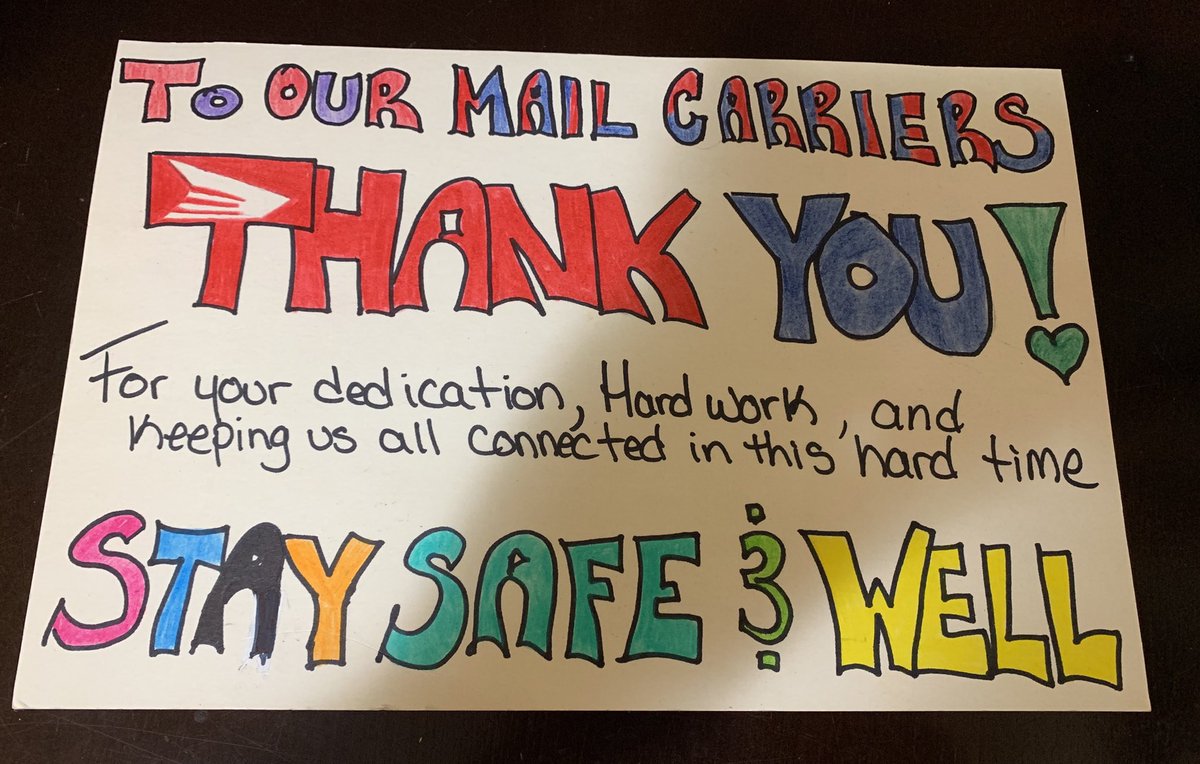 TO OUR MAIL CARRIERS
THANK YOU!
For your dedication, Hard work, and
Keeping us all connected in this hard time
STAY SAFE & WELL